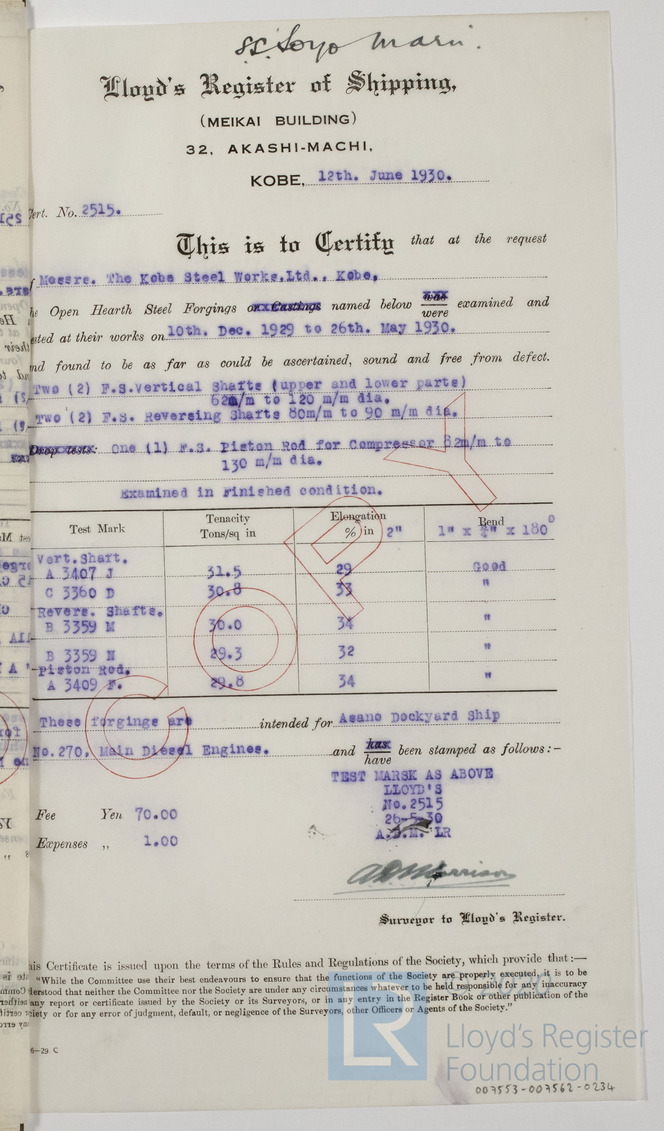 SS. Soyo Maru.
Lloyd's Register of Shipping,
(MEIKAI BUILDING)
32, AKASHI-MACHI,
KOBE, 12th. June 1930.
ert. No. 2515.
This is to Certify that at the request
f Messrs. The Kobe Steel Works.Ltd., Kobe,
he Open Hearth Steel Forgings or Castings named below was were examined and
sted at their works on 10th. Dec. 1929 to 26th. May 1930.
nd found to be as far as could be ascertained, sound and free from defect.
Two (2) F.S.Vertical Shafts (upper and lower parts)
62m/m to 120 m/m dia.
Two (2) F.S. Reversing Shafts 80m/m to 90 m/m dia.
Drop tests: One (1) F.S. Piston Rod for Compressor 82m/m to
130 m/m dia.
Examined in Finished condition.
Test Mark Tenacity Tons/sq in Elongation % in 2" Bend 1" x ¾" x 180°
Vert.Shaft.
A 3407 J 31.5 29 Good
C 3360 D 30.8 33 "
Revers. Shafts.
B 3359 M 30.0 34 "
B 3359 N 29.3 32 "
Piston Rod.
A 3409 F. 29.8 34 "
COPY
These forgings are intended for Asano Dockyard Ship
No.270, Main Diesel Engines. and has have been stamped as follows:—
TEST MARSK AS ABOVE
LLOYD'S
No.2515
26-5-30
A.D.M. LR
Fee Yen 70.00
Expenses „ 1.00
ADMorrison
Surveyor to Lloyd's Register.
his Certificate is issued upon the terms of the Rules and Regulations of the Society, which provide that:—
"While the Committee use their best endeavours to ensure that the functions of the Society are properly executed, it is to be
derstood that neither the Committee nor the Society are under any circumstances whatever to be held responsible for any inaccuracy
any report or certificate issued by the Society or its Surveyors, or in any entry in the Register Book or other publication of the
ciety or for any error of judgment, default, or negligence of the Surveyors, other Officers or Agents of the Society."
6–29 C
LR
Lloyd's Register
Foundation
007553-007562-0234